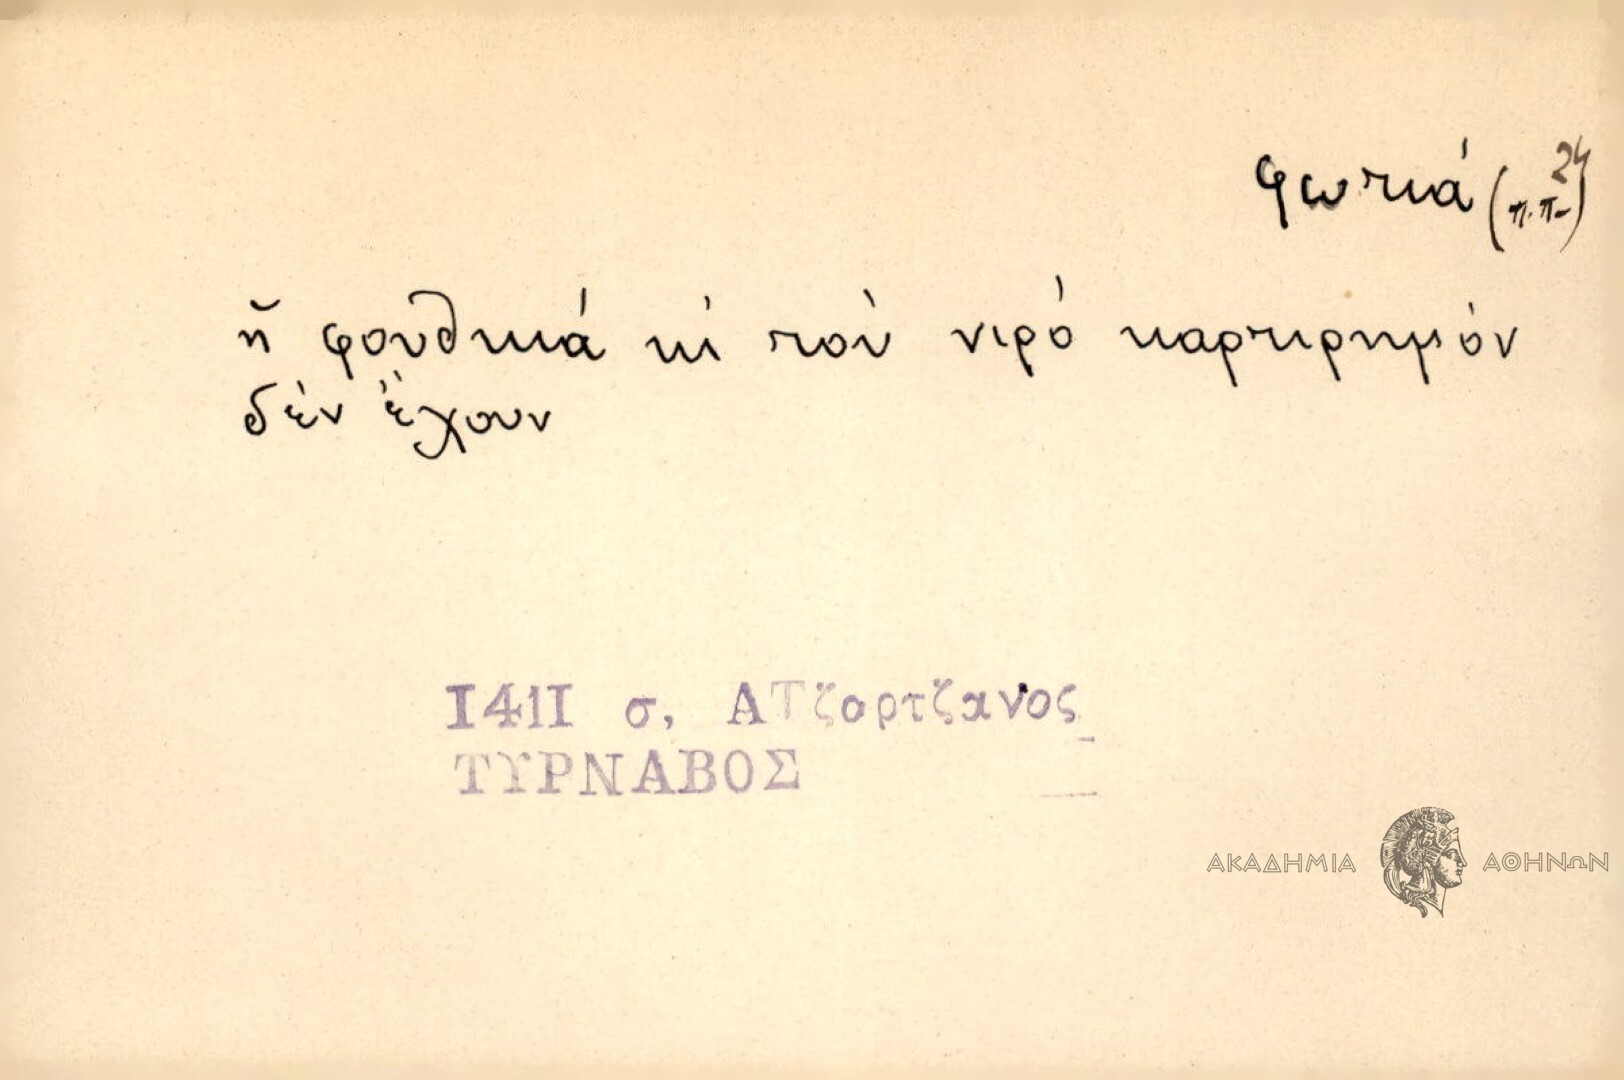 φωτιά (π.π. 24)
ἡ φουθκιά κὶ τοὺ νιρό καρτιρημόν
δέν ἔχουν
1411 σ, ΑΤζαρτζανος
ΤΥΡΝΑΒΟΣ
ΑΚΑΔΗΜΙΑ ΑΘΗΝΩΝ